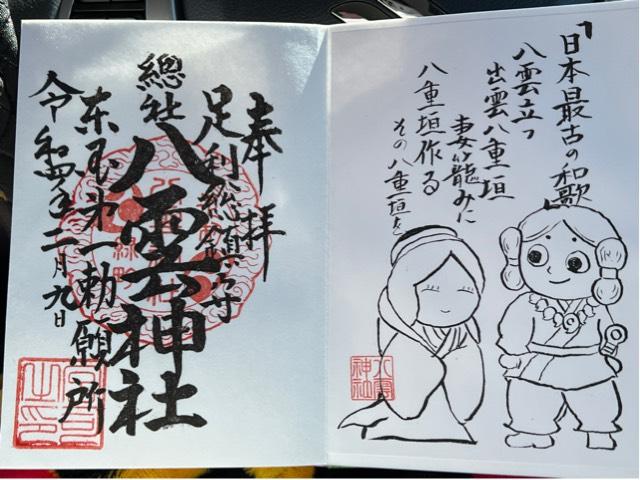 「日本最古の和歌」
八雲立つ
出雲八重垣
妻籠みに
八重垣作る
その八重垣を
八雲神社
奉拝
足利総鎮守
總社
八雲神社
東国第一勅願所
令和四年二月九日
宮司之印